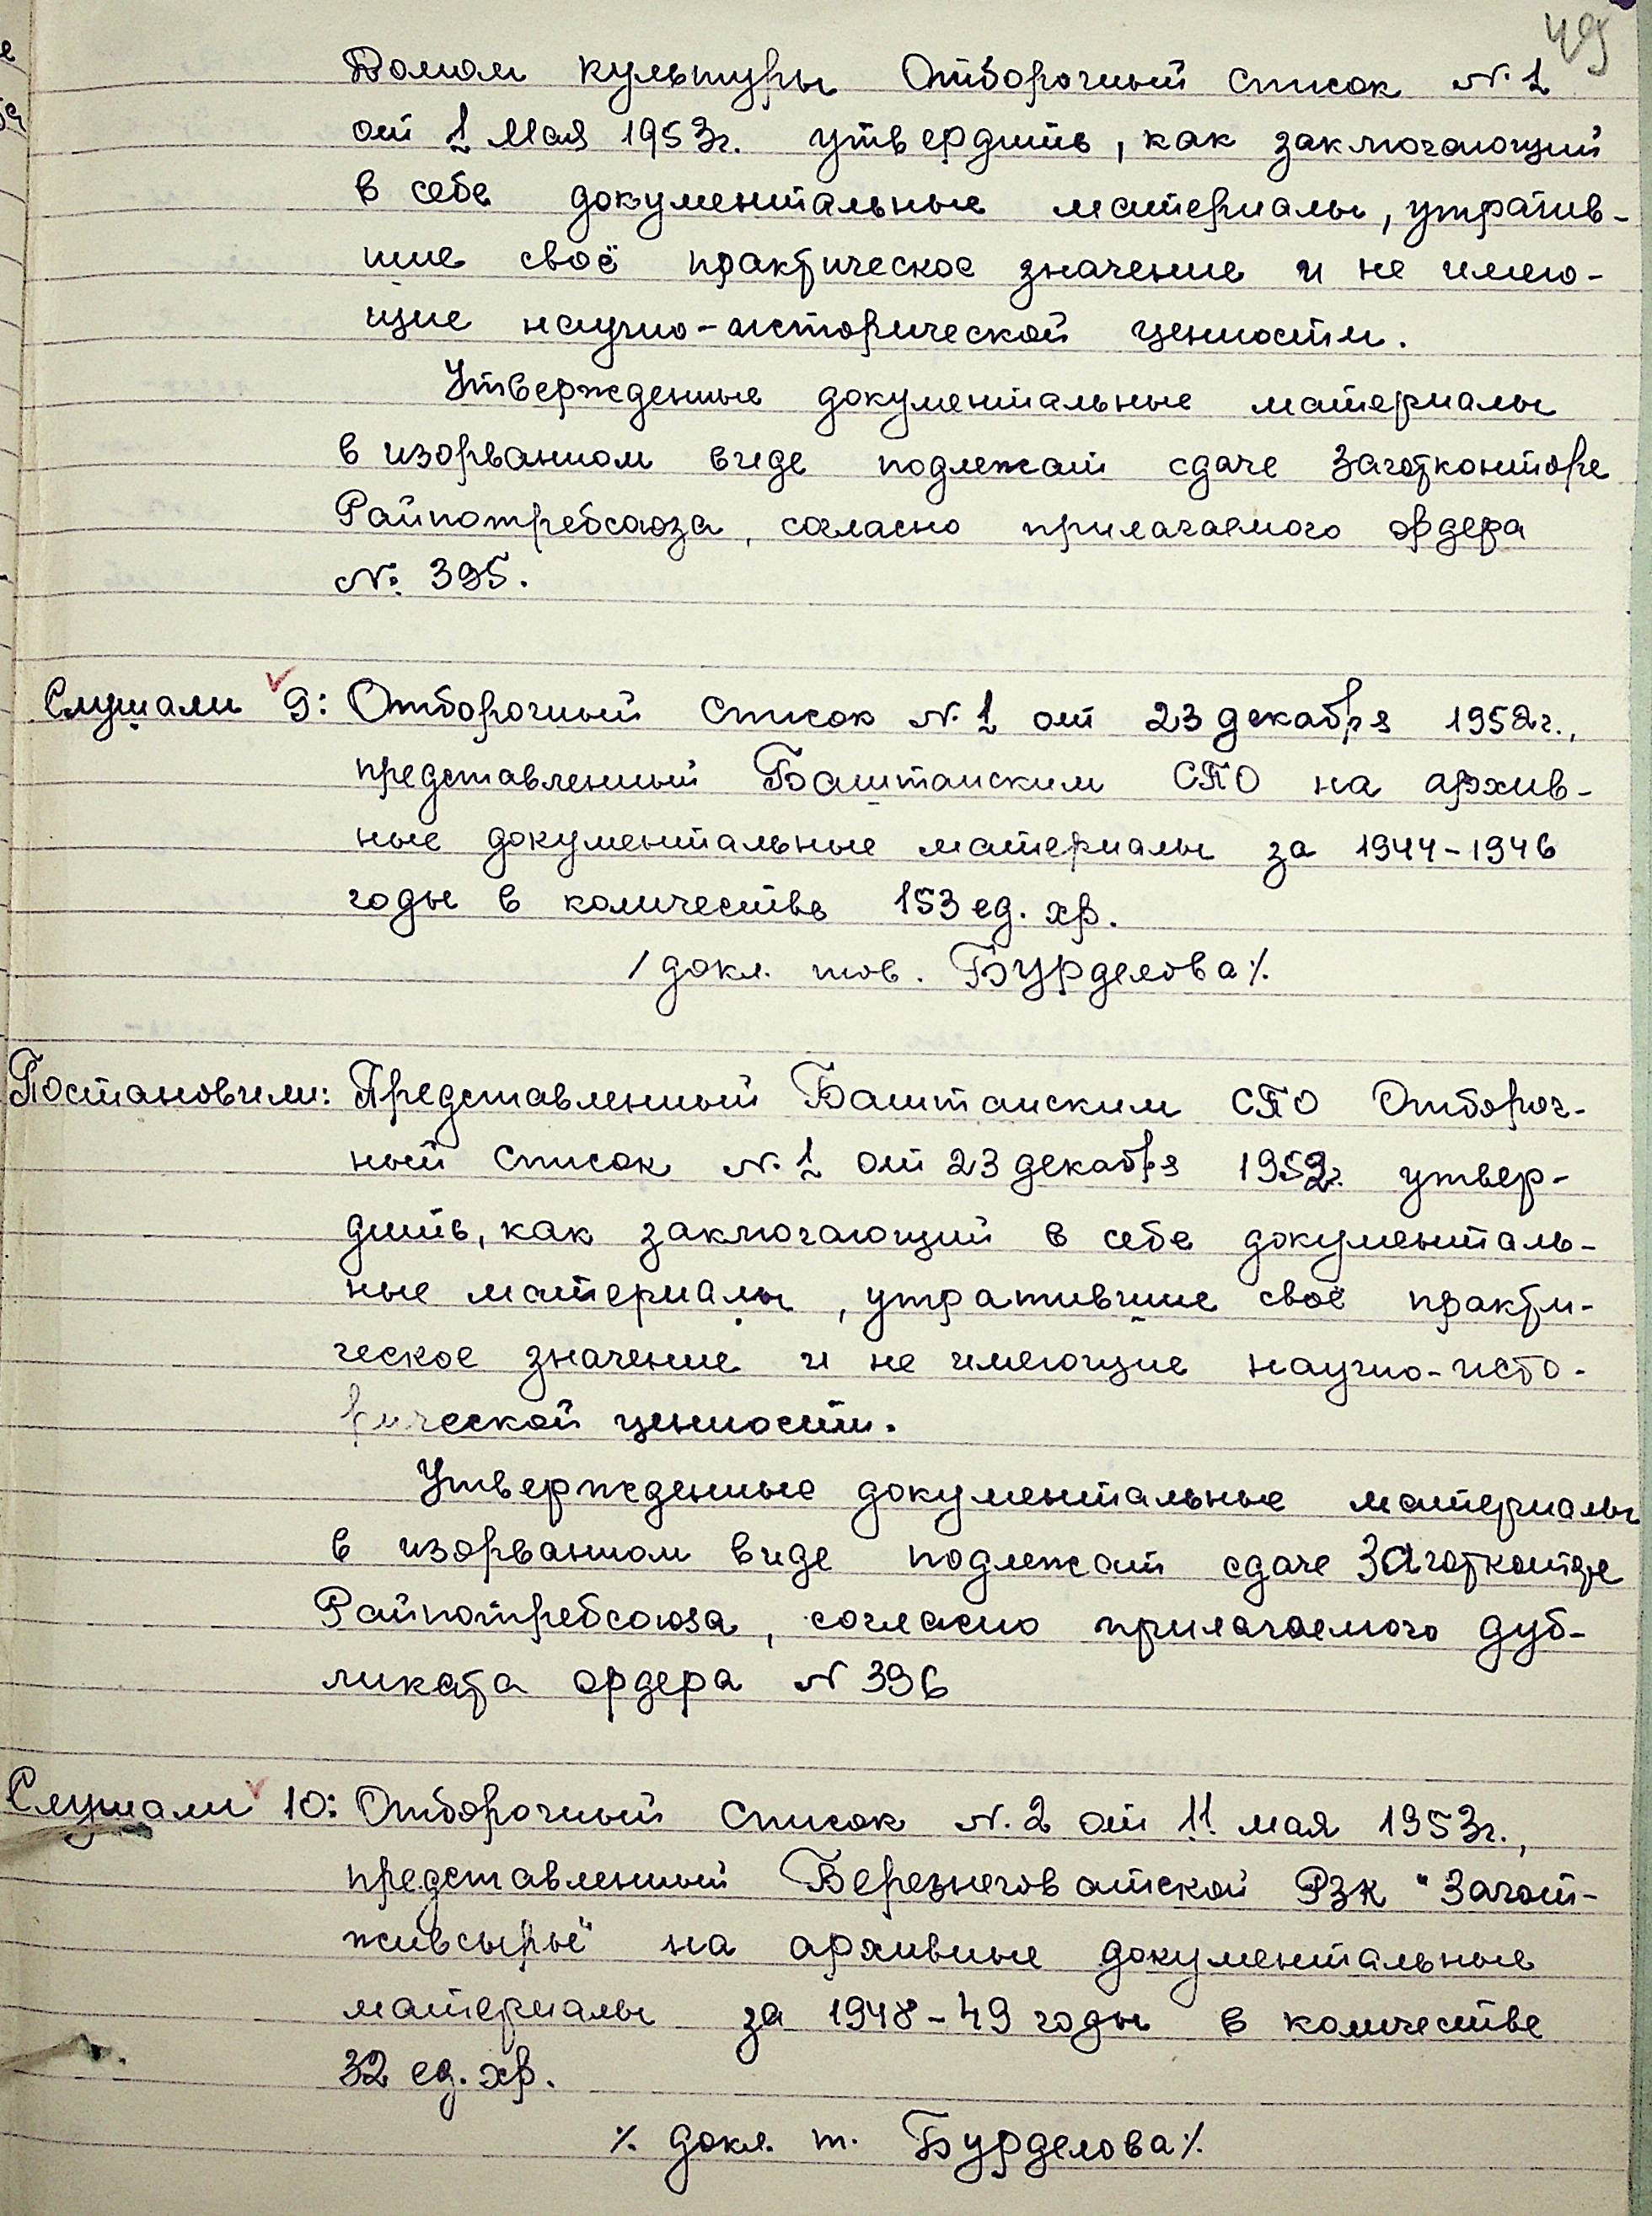 49
Домом культуры Отборочный список №1
от 1 Мая 1953г. утвердить, как заключающий
в себе документальные материалы, утратив-
шие своё практическое значение и не имею-
щие научно-исторической ценности.
Утвержденные документальные материалы
в изорванном виде подлежат сдаче Заготконторе
Райпотребсоюза, согласно прилагаемого ордера
№ 395.
Слушали 9: Отборочный список №1 от 23 декабря 1952г.,
представленный Баштанским СПО на архив-
ные документальные материалы за 1944-1946
годы в количестве 153 ед. хр.
/докл. тов. Бурделова/.
Постановили: Представленный Баштанским СПО Отбороч-
ный список №1 от 23 декабря 1952г. утвер-
дить, как заключающий в себе документаль-
ные материалы, утратившие своё практи-
ческое значение и не имеющие научно-исто-
рической ценности.
Утвержденные документальные материалы
в изорванном виде подлежат сдаче Заготконторе
Райпотребсоюза, согласно прилагаемого дуб-
ликата ордера № 396
Слушали 10: Отборочный список №2 от 11 мая 1953г.,
представленный Березнеговатской РЗК "Загот-
живсырьё" на архивные документальные
материалы за 1948-49 годы в количестве
32 ед. хр.
/. докл. т. Бурделова/.